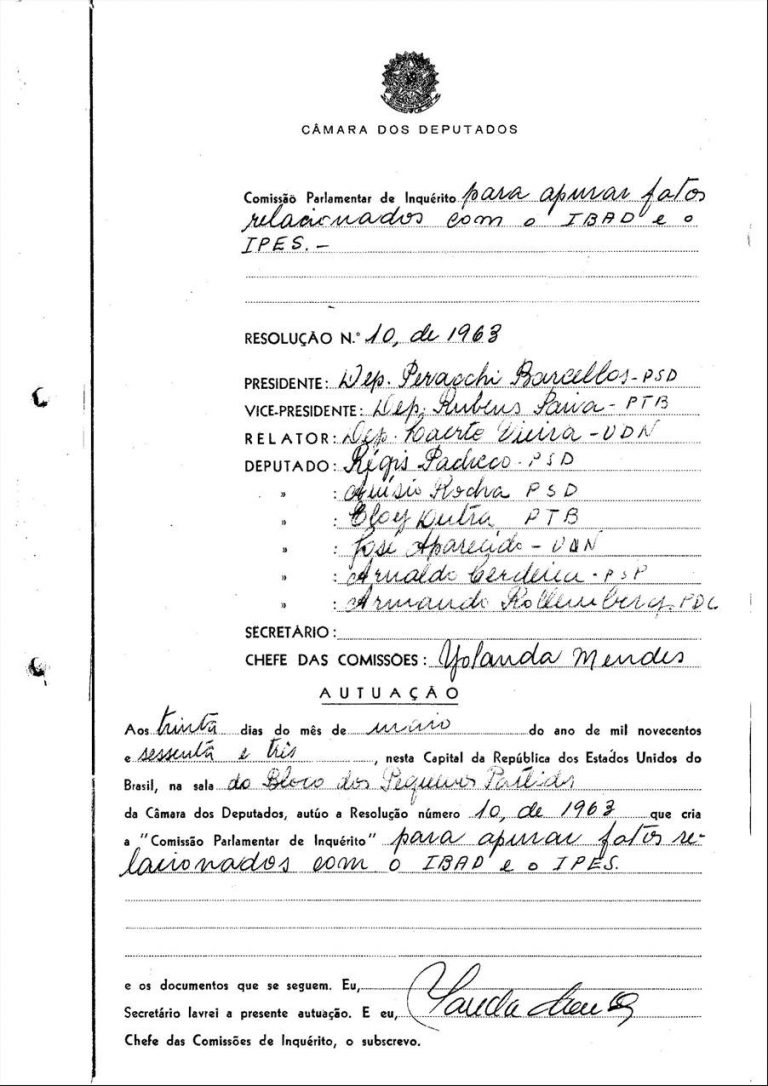 CÂMARA DOS DEPUTADOS
Comissão Parlamentar de Inquérito para apurar fatos
relacionados com o IBAD e o
IPES. –
RESOLUÇÃO N.º 10, de 1963
PRESIDENTE: Dep. Peracchi Barcellos - PSD
VICE-PRESIDENTE: Dep. Rubens Paiva - PTB
RELATOR: Dep. Laerte Vieira - UDN
DEPUTADO: Régis Pacheco - PSD
» : Aluísio Rocha PSD
» : Eloy Dutra PTB
» : José Aparecido - UDN
» : Arnaldo Cerdeira - PSP
» : Armando Rollemberg - PDC
SECRETÁRIO:
CHEFE DAS COMISSÕES: Yolanda Mendes
AUTUAÇÃO
Aos trinta dias do mês de maio do ano de mil novecentos
e sessenta e três, nesta Capital da República dos Estados Unidos do
Brasil, na sala do Bloco dos Pequenos Partidos
da Câmara dos Deputados, autúo a Resolução número 10, de 1963 que cria
a "Comissão Parlamentar de Inquérito" para apurar fatos re-
lacionados com o IBAD e o IPES.
e os documentos que se seguem. Eu,
Secretário lavrei a presente autuação. E eu, Yolanda Mendes
Chefe das Comissões de Inquérito, o subscrevo.